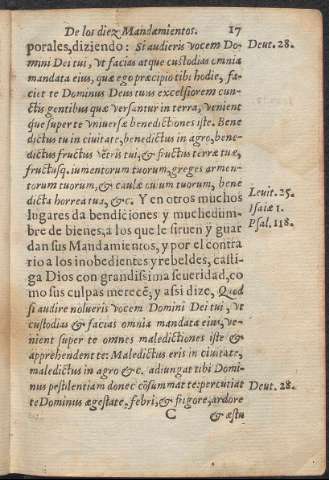 De los diez Mandamientos. 17
porales, diziendo: Si audieris vocem Do- Deut. 28.
mini Dei tui, vt facias atque custodias omnia
mandata eius, quæ ego præcipio tibi hodie, fa-
ciet te Dominus Deus tuus excelsiorem cun-
ctis gentibus quæ versantur in terra, venient
que super te vniuersæ benedictiones iste. Bene
dictus tu in ciuitate, benedictus in agro, bene-
dictus fructus vētris tui, & fructus terræ tuæ,
fructusq. iumentorum tuorum, greges armen-
torum tuorum, & caulæ ouium tuorum, bene
dicta horrea tua, &c. Y en otros muchos Leuit. 25.
lugares da bendiciones y muchedum- Isaiæ 1.
bre de bienes, a los que le siruen y guar Psal. 118.
dan sus Mandamientos, y por el contra
rio a los inobedientes y rebeldes, casti-
ga Dios con grandissima seueridad, co
mo sus culpas merecē; y assi dize, Quod
si audire nolueris vocem Domini Dei tui, vt
custodias & facias omnia mandata eius, ve-
nient super te omnes maledictiones iste &
apprehendent te: Maledictus eris in ciuitate,
maledictus in agro &c. adiungat tibi Domi-
nus pestilentiam donec cōsummat te: percutiat Deut. 28.
te Dominus ægestate, febri, & frigore, ardore
C & æstu